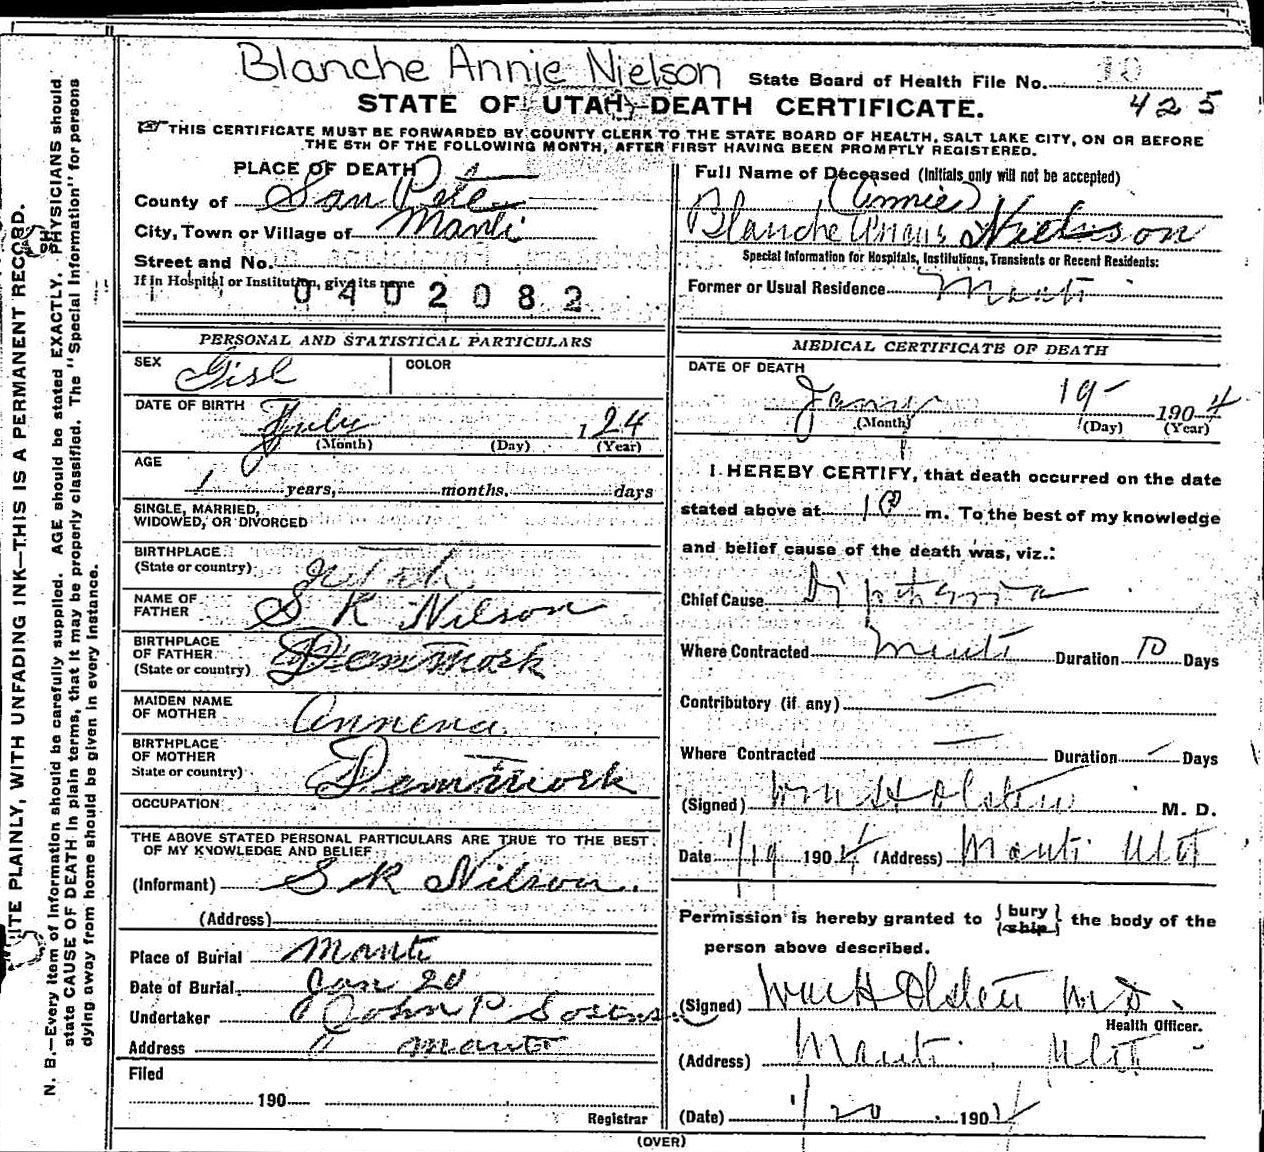 Blanche Annie Nielson State Board of Health File No. 10
425
STATE OF UTAH—DEATH CERTIFICATE.
THIS CERTIFICATE MUST BE FORWARDED BY COUNTY CLERK TO THE STATE BOARD OF HEALTH, SALT LAKE CITY, ON OR BEFORE
THE 5TH OF THE FOLLOWING MONTH, AFTER FIRST HAVING BEEN PROMPTLY REGISTERED.
PLACE OF DEATH
County of San Pete
City, Town or Village of Manti
Street and No.
If in Hospital or Institution, give its name
0402082
Full Name of Deceased (Initials only will not be accepted)
(Annie)
Blanche Nielson
Special Information for Hospitals, Institutions, Transients or Recent Residents:
Former or Usual Residence Manti
PERSONAL AND STATISTICAL PARTICULARS
SEX Girl COLOR
DATE OF BIRTH July 1 24
(Month) (Day) (Year)
AGE
1 years, months, days
SINGLE, MARRIED,
WIDOWED, OR DIVORCED
BIRTHPLACE
(State or country) Utah
NAME OF
FATHER S K Nilson
BIRTHPLACE
OF FATHER
(State or country) Denmark
MAIDEN NAME
OF MOTHER Annena
BIRTHPLACE
OF MOTHER
State or country) Denmark
OCCUPATION
THE ABOVE STATED PERSONAL PARTICULARS ARE TRUE TO THE BEST
OF MY KNOWLEDGE AND BELIEF
(Informant) S K Nilson.
(Address)
Place of Burial Manti
Date of Burial Jan 20
Undertaker John P
Address Manti
Filed
190
Registrar
MEDICAL CERTIFICATE OF DEATH
DATE OF DEATH
Jany 19- 1904
(Month) (Day) (Year)
I HEREBY CERTIFY, that death occurred on the date
stated above at m. To the best of my knowledge
and belief cause of the death was, viz.:
Chief Cause Diptheria
Where Contracted Manti Duration 10 Days
Contributory (if any) —
Where Contracted — Duration — Days
(Signed) Wm H Olsten M. D.
Date 1/19 1904 (Address) Manti Utt
Permission is hereby granted to {bury
{ship} the body of the
person above described.
(Signed) Wm H Olsten M D.
Health Officer.
(Address) Manti Utt
(Date) 1/20 1904
(OVER)
WRITE PLAINLY, WITH UNFADING INK—THIS IS A PERMANENT RECORD.
N. B.—Every item of information should be carefully supplied. AGE should be stated EXACTLY. PHYSICIANS should
state CAUSE OF DEATH in plain terms, that it may be properly classified. The "Special Information" for persons
dying away from home should be given in every instance.